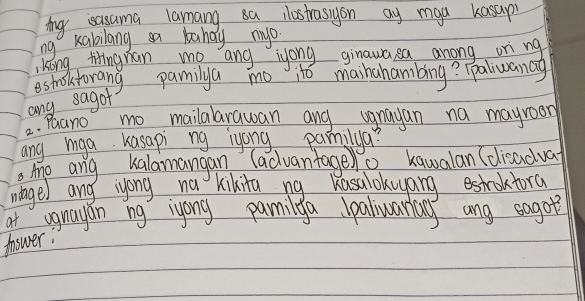 Ang sasama lamang sa ilostrasiyon ay mga kasapi
ng kabilang sa bahay niyo.
1. kong titingnan mo ang iyong ginawa, sa anong uri ng
estroktorang pamilya mo ito maihahambing? Ipaliwanag
ang sagot
2. Paano mo mailalarawan ang ugnayan na mayroon
ang mga kasapi ng iyong pamilya?
3 Ano ang kalamangan (advantage) o kawalan (disadva-
ntage) ang iyong na kikita ng kasalokuyang estroktora
at ugnayan ng iyong pamilya Ipaliwanag ang sagot?
Answer: